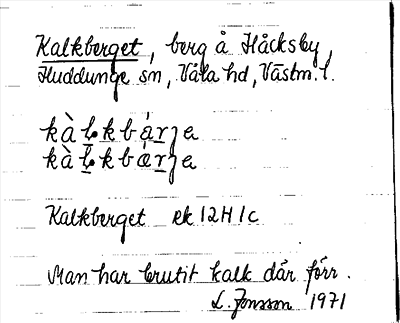 Kalkberget, berg å Håcksby,
Huddunge sn, Våla hd, Västm. l.
kàḷkbá̱rje
kàḷkbǽ̱rje
Kalkberget ek 12H1c
Man har brutit kalk där förr.
L. Jonsson 1971